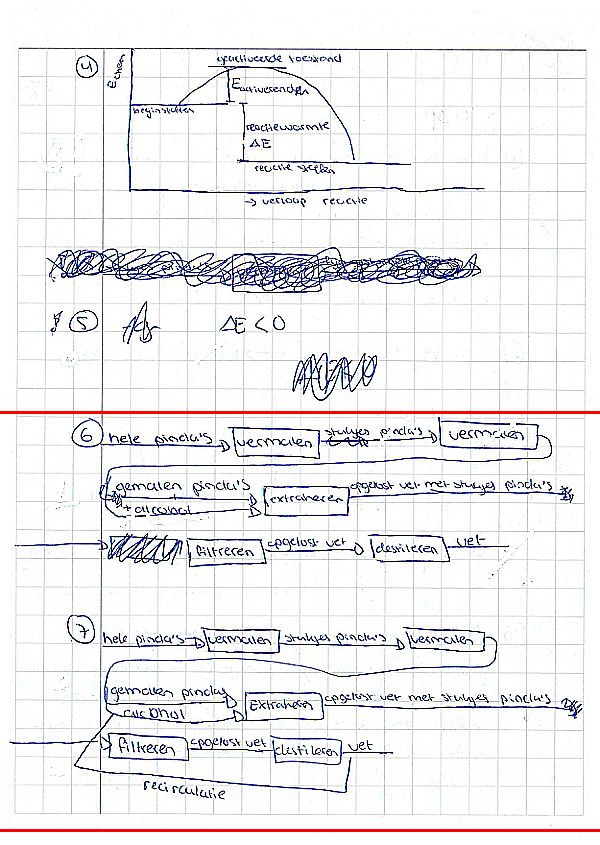 4
Echem
geactiveerde toestand
Eactiveren
beginstoffen
reactiewarmte
ΔE
reactie stoffen
→ verloop reactie
5 ΔE < 0
6 hele pinda's vermalen stukjes pinda's vermalen
gemalen pinda's extraheren opgelost vet met stukjes pinda's
+ alcohol
filtreren opgelost vet destileren vet
7 hele pinda's vermalen stukjes pinda's vermalen
gemalen pindas Extraheren opgelost vet met stukjes pinda's
alcohol
filtreren opgelost vet destileren vet
recirculatie